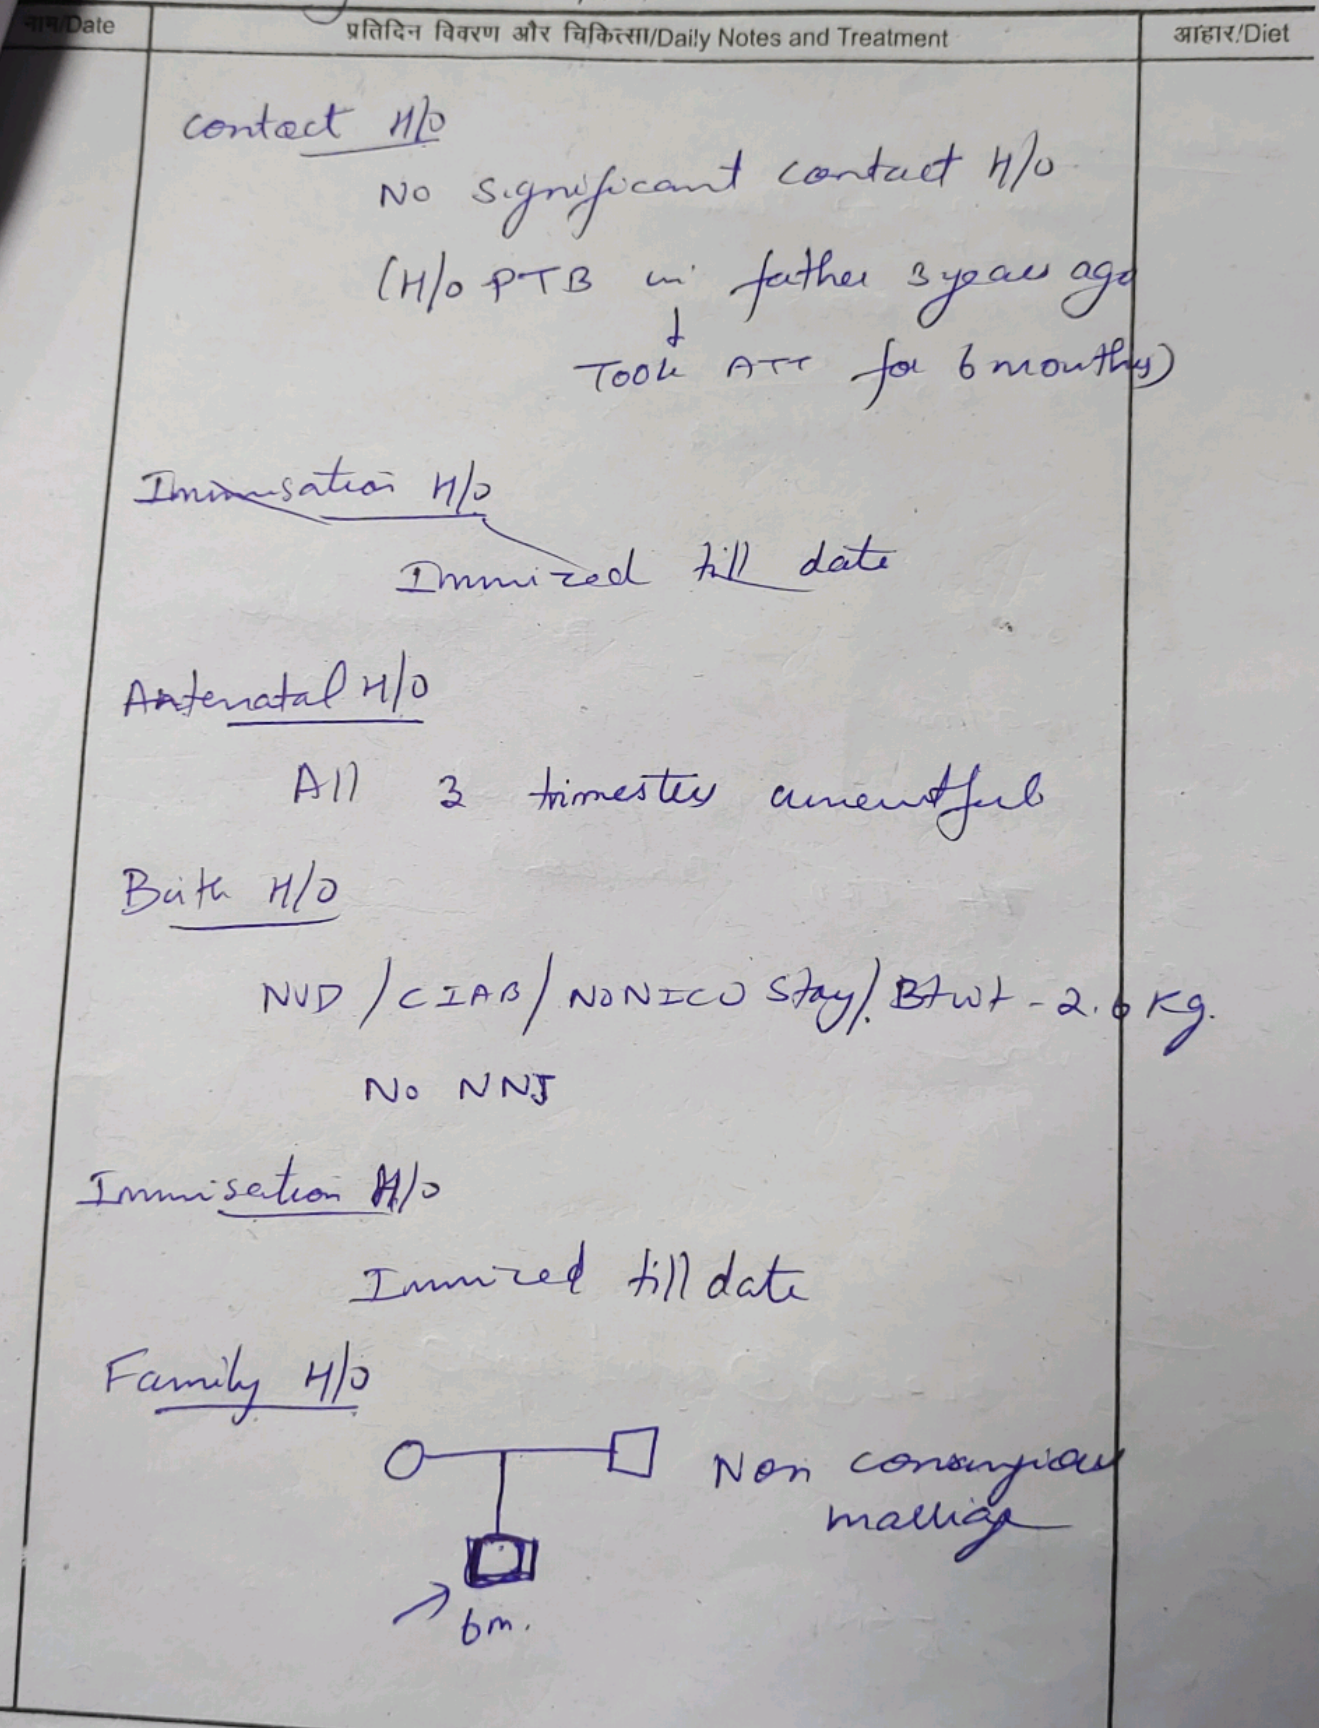 नाम/Date
प्रतिदिन विवरण और चिकित्सा/Daily Notes and Treatment
आहार/Diet
contact H/O
No significant contact H/O
(H/o PTB in father 3 years ago
↓
Took ATT for 6 months)
Immusation H/O
Immuized till date
Antenatal H/O
All 3 trimesters
Birth H/O
NVD / CIAB / NO NICU Stay/. Bt wt - 2.6 Kg.
No NNJ
Immusation H/O
Immuized till date
Family H/O
Non
6m.